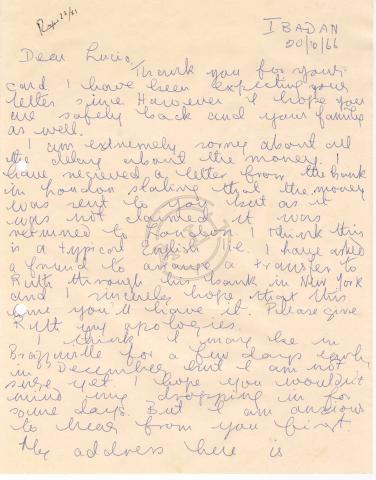 IBADAN
20/10/66
Dear Lucio,
Thank you for your
card. I have been expecting your
letter since. However I hope you
are safely back and your family
as well.
I am extremely sorry about all
the delay about the money. I
have recieved a letter from the bank
in London stating that the money
was sent to you but as it
was not claimed it was
returned to London. I think this
is a typical English lie. I have asked
a friend to arrange a transfer to
Ruth through his bank in New York
and I sincerely hope that this
time you'll have it. Please give
Ruth my apologies.
I think I may be in
Brazzaville for a few days early
in December but I am not
sure yet. I hope you wouldn't
mind my dropping in for
some days. But I am anxious
to hear from you first.
My address here is